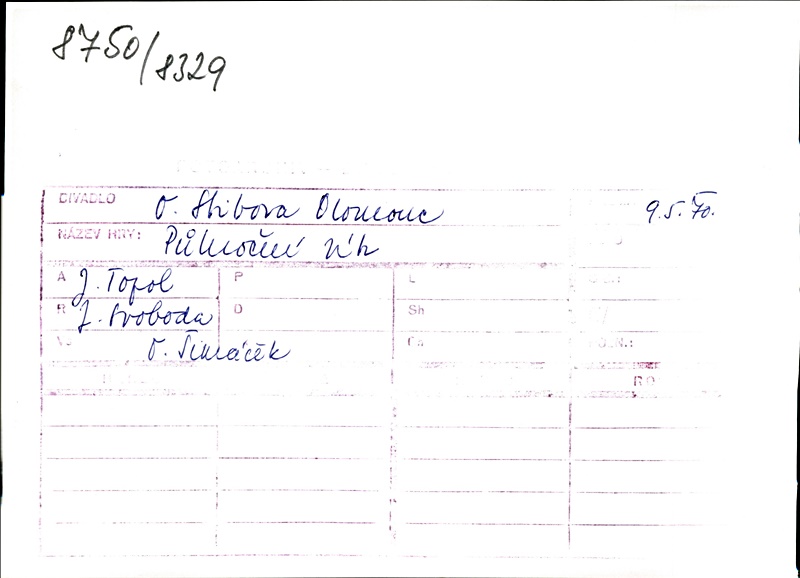 8750/8329
DIVADLO O. Stibora Olomouc 9.5.70.
NÁZEV HRY: Půlnoční vítr
A J. Topol P
R J. Svoboda D Sh
O. Šimáček